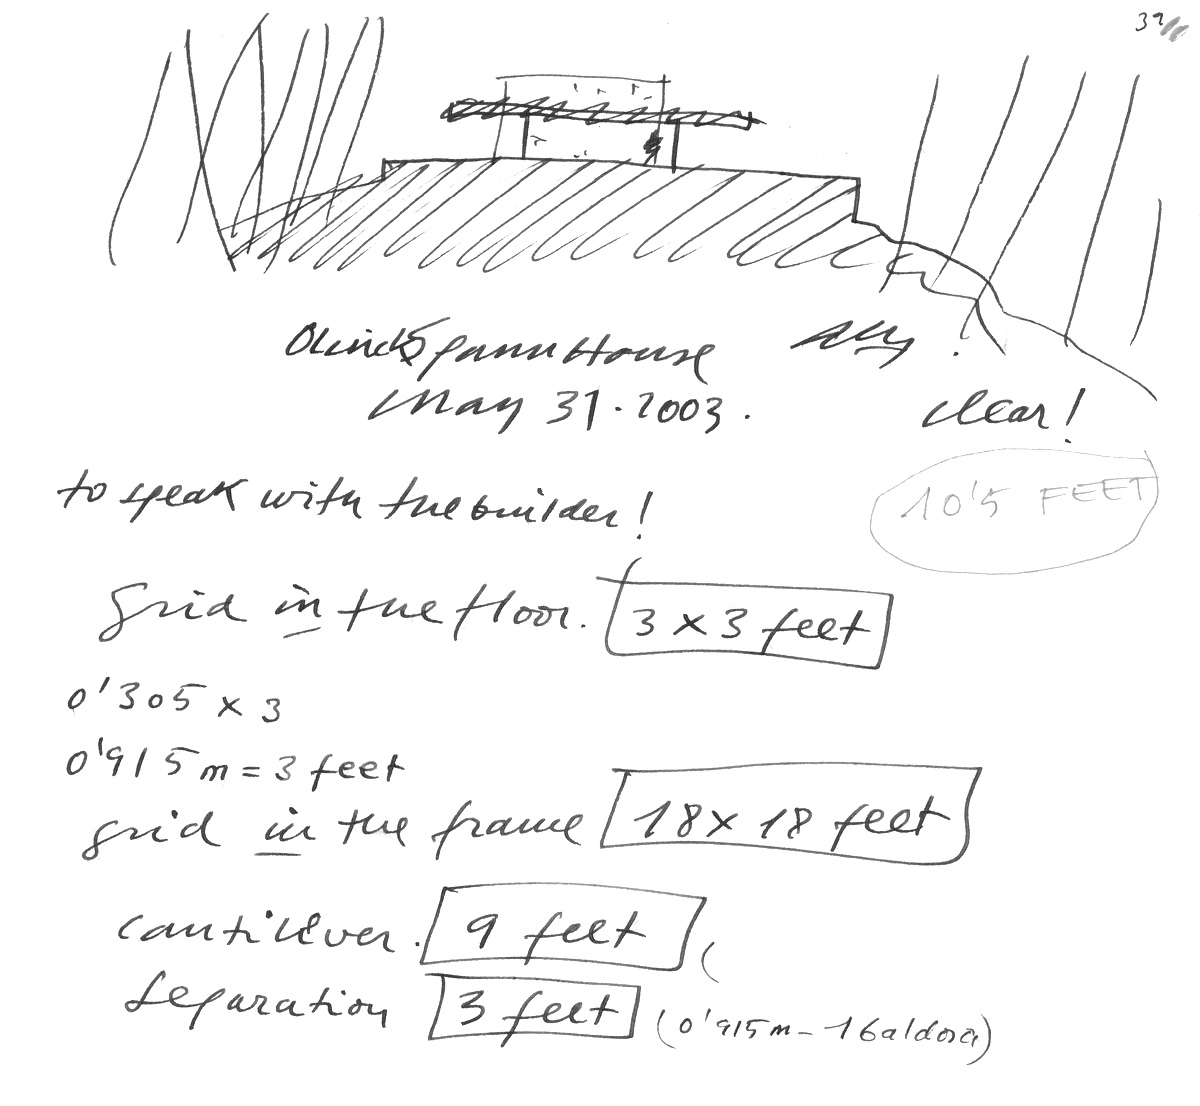 39
Olnick Spanu House
May 31. 2003.
clear!
10'5 FEET
to speak with the builder!
grid in the floor. 3 x 3 feet
0'305 x 3
0'915 m = 3 feet
grid in the frame 18 x 18 feet
cantilever. 9 feet (
Separation 3 feet (0'915 m - 1 baldosa)